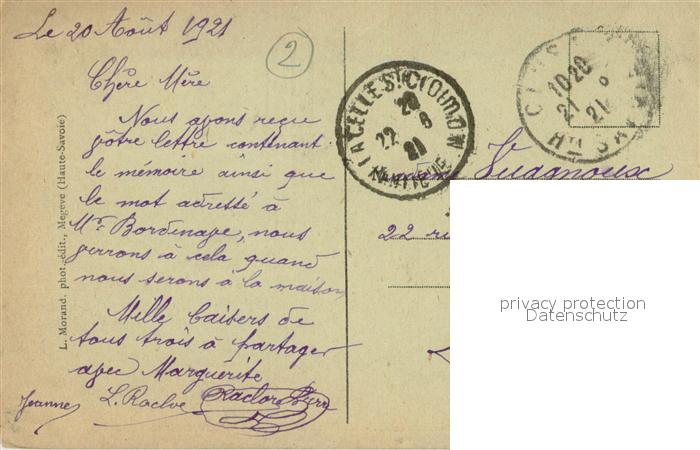 Le 20 Août 1921
2
Chère Mère
Nous avons reçu
vôtre lettre contenant
le mémoire ainsi que
le mot adressé à
Mr. Bordenave, nous
verrons à cela quand
nous serons à la maison
Mille baisers de
tous trois à partager
avec Marguerite
Jeanne L. Raclve
L. Morand. phot.-édit., Megève (Haute-Savoie)
LA CELLE ST CLOUD
22 8
21
10 20
21 8
21
Hte SAVOIE
22
privacy protection
Datenschutz